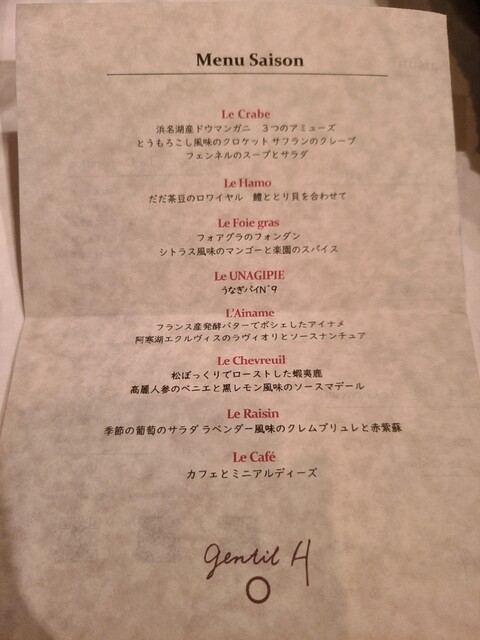 Menu Saison
Le Crabe
浜名湖産ドウマンガニ　3つのアミューズ
とうもろこし風味のクロケット サフランのクレープ
フェンネルのスープとサラダ
Le Hamo
だだ茶豆のロワイヤル　鱧ととり貝を合わせて
Le Foie gras
フォアグラのフォンダン
シトラス風味のマンゴーと楽園のスパイス
Le UNAGIPIE
うなぎパイN°9
L'Ainame
フランス産発酵バターでポシェしたアイナメ
阿寒湖エクルヴィスのラヴィオリとソースナンチュア
Le Chevreuil
松ぼっくりでローストした蝦夷鹿
高麗人参のベニエと黒レモン風味のソースマデール
Le Raisin
季節の葡萄のサラダ ラベンダー風味のクレムブリュレと赤紫蘇
Le Café
カフェとミニアルディーズ
gentil H